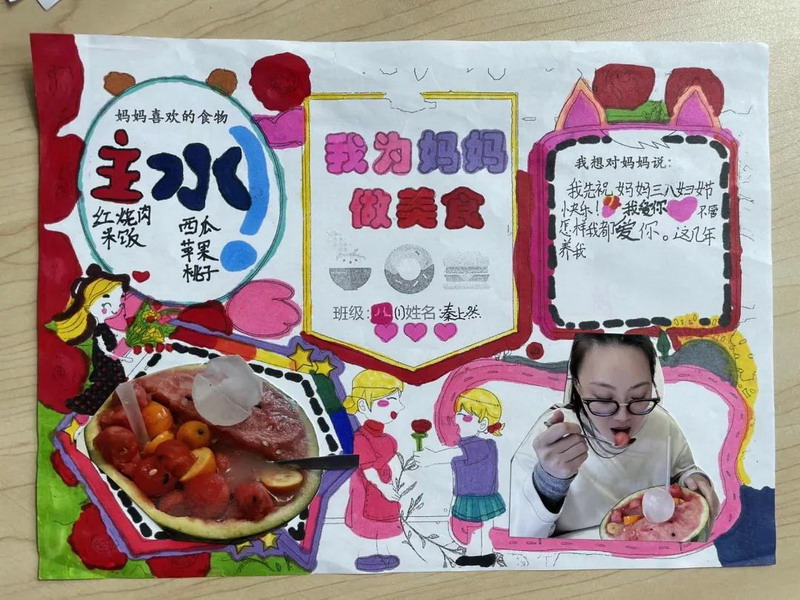 妈妈喜欢的食物
主 水!
红烧肉
米饭
西瓜
苹果
桃子
我为妈妈
做美食
班级: 八(1) 姓名:秦上然
我想对妈妈说:
我先祝妈妈三八妇女节
快乐! 我爱你 不管
怎样我都爱你。这几年
养我